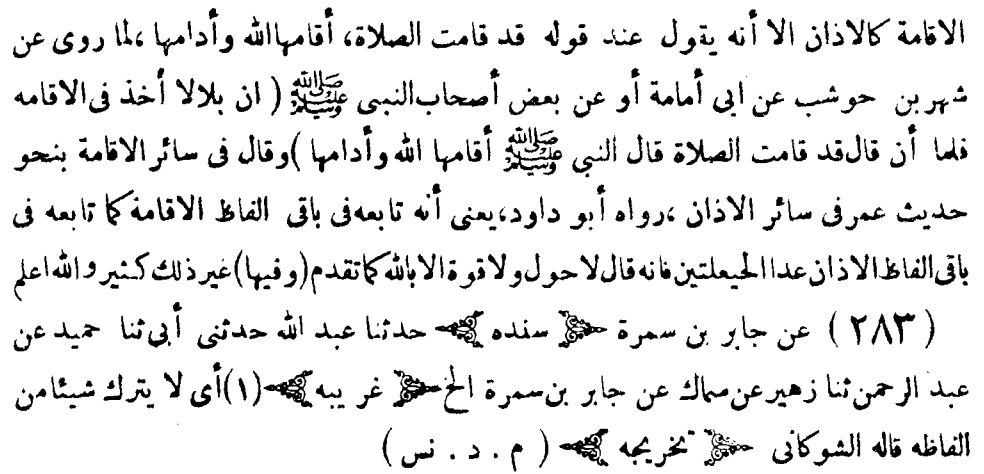 الاقامة كالاذان الا أنه يقول عند قوله قد قامت الصلاة، أقامها الله وأدامها ،لما روى عن
شهر بن حوشب عن ابى أمامة أو عن بعض أصحاب النبى ﷺ ( ان بلالا أخذ فى الاقامه
فلما أن قال قد قامت الصلاة قال النبي ﷺ أقامها الله وأدامها )وقال فى سائر الاقامة بنحو
حديث عمر فى سائر الاذان ،رواه أبو داود،يعنى أنه تابعه فى باقى الفاظ الاقامة كما تابعه فى
باقى الفاظ الاذان عدا الحيعلتين فانه قال لا حول ولا قوة الا بالله كما تقدم (وفيها) غير ذلك كثير والله اعلم
(٢٨٣) عن جابر بن سمرة ﴿ سنده ﴾ حدثنا عبد الله حدثنى أبى ثنا حميد عن
عبد الرحمن ثنا زهير عن سماك عن جابر بن سمرة الخ ﴿ غريبه ﴾ (١) أى لا يترك شيئا من
الفاظه قاله الشوكانى ﴿ تخريجه ﴾ ( م . د . نس )